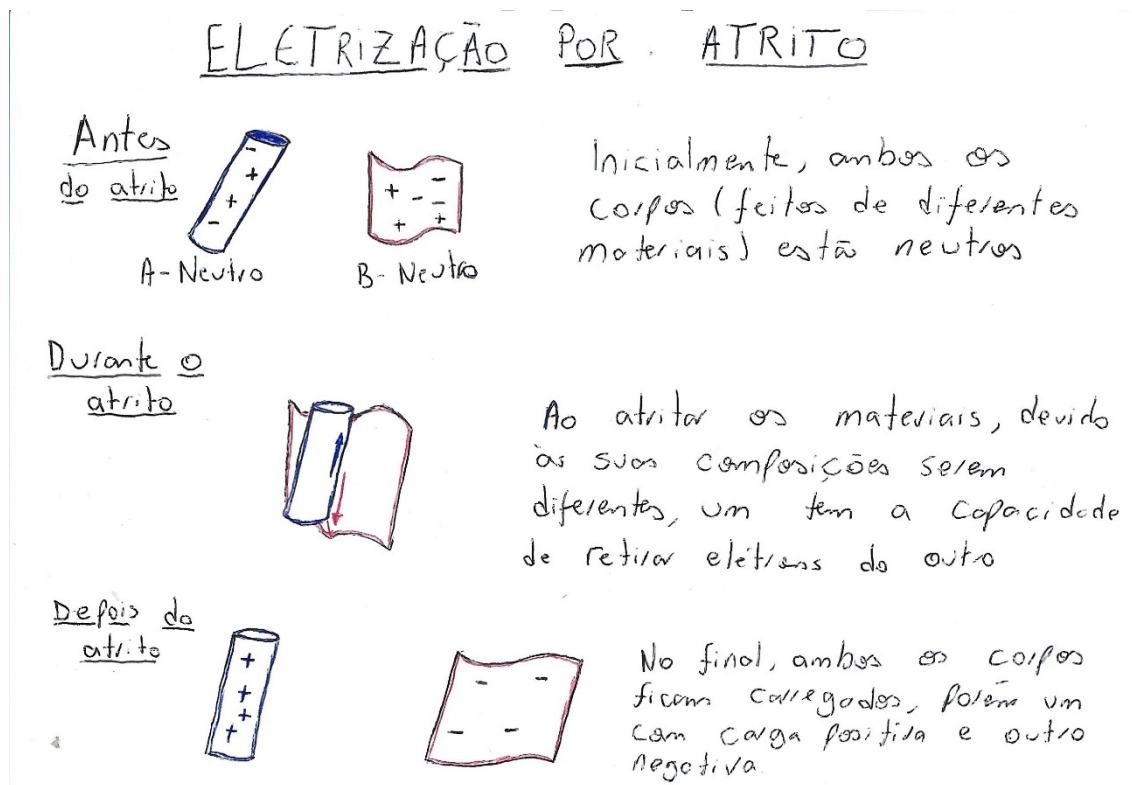 ELETRIZAÇÃO POR. ATRITO
Antes
do atrito
-
+
+
-
+ - -
- -
+ +
A-Neutro
B-Neutro
Inicialmente, ambos os
corpos (feitos de diferentes
materiais) estão neutros
Durante o
atrito
Ao atritar os materiais, devido
às suas composições serem
diferentes, um tem a capacidade
de retirar elétrons do outro
Depois do
atrito
+
+
+
+
- -
- -
No final, ambos os corpos
ficam carregados, porém um
com carga positiva e outro
negativa.